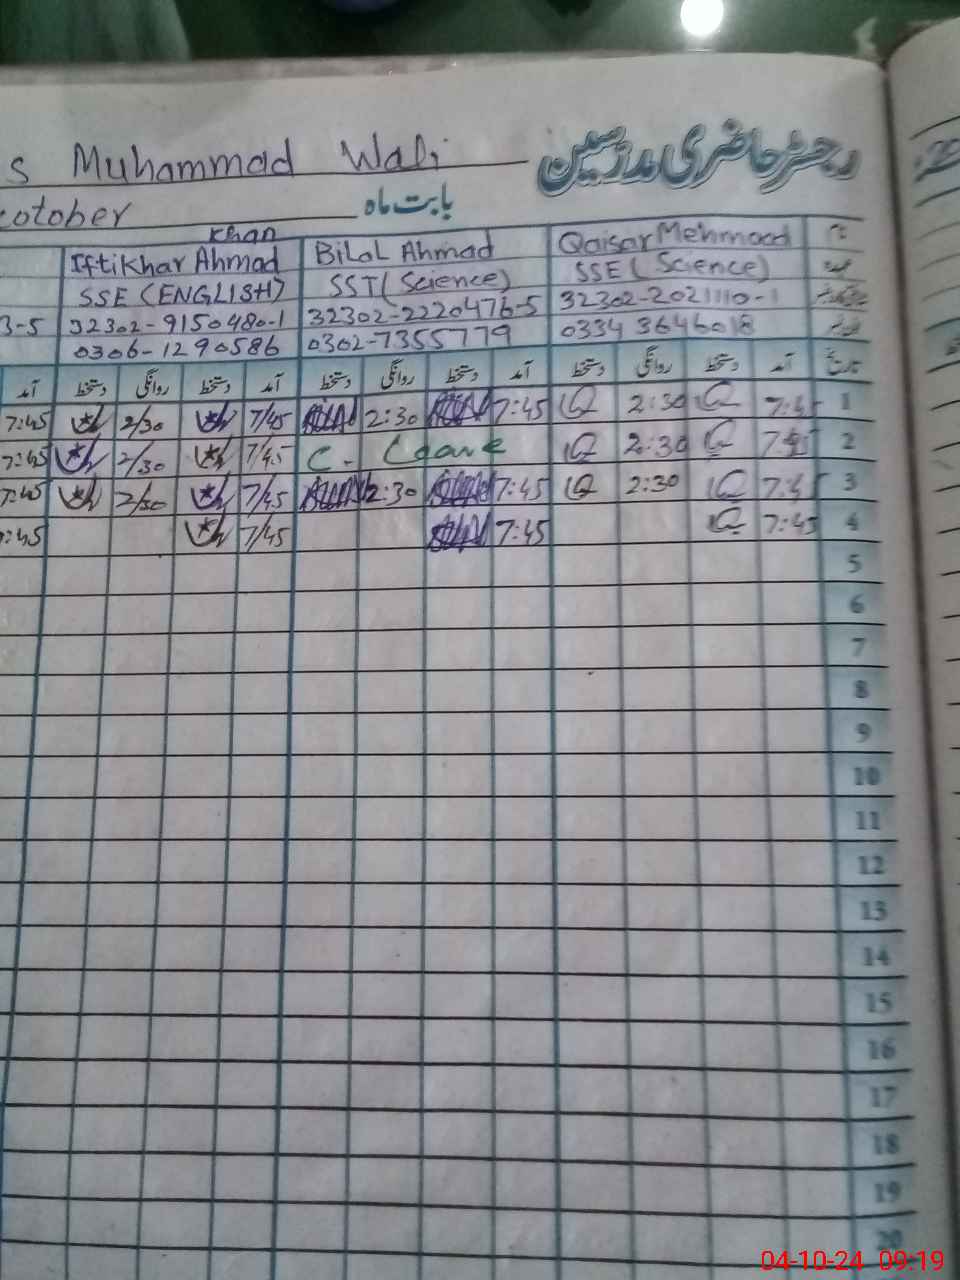 رجسٹر حاضری مدرسین
s Muhammad Wali
بابت ماہ
cotober
نام Qaisar Mehmood Bilal Ahmad Iftikhar Ahmad Khan
عہدہ SSE (Science) SST (Science) SSE (ENGLISH)
32302-2021110-1 32302-2220476-5 32302-9150480-1 3-5
0334 3646018 0302-7355779 0306-1290586
تاریخ آمد دستخط روانگی دستخط آمد دستخط روانگی دستخط آمد دستخط روانگی دستخط آمد
1 7:45 2:30 7:45 2:30 7/45 2/30 7:45
2 7:45 2:30 C. Leave 7/45 2/30 7:45
3 7:45 2:30 7:45 2:30 7/45 2/30 7:45
4 7:45 7:45 7/45 7:45
5
6
7
8
9
10
11
12
13
14
15
16
17
18
19
20
04-10-24 09:19